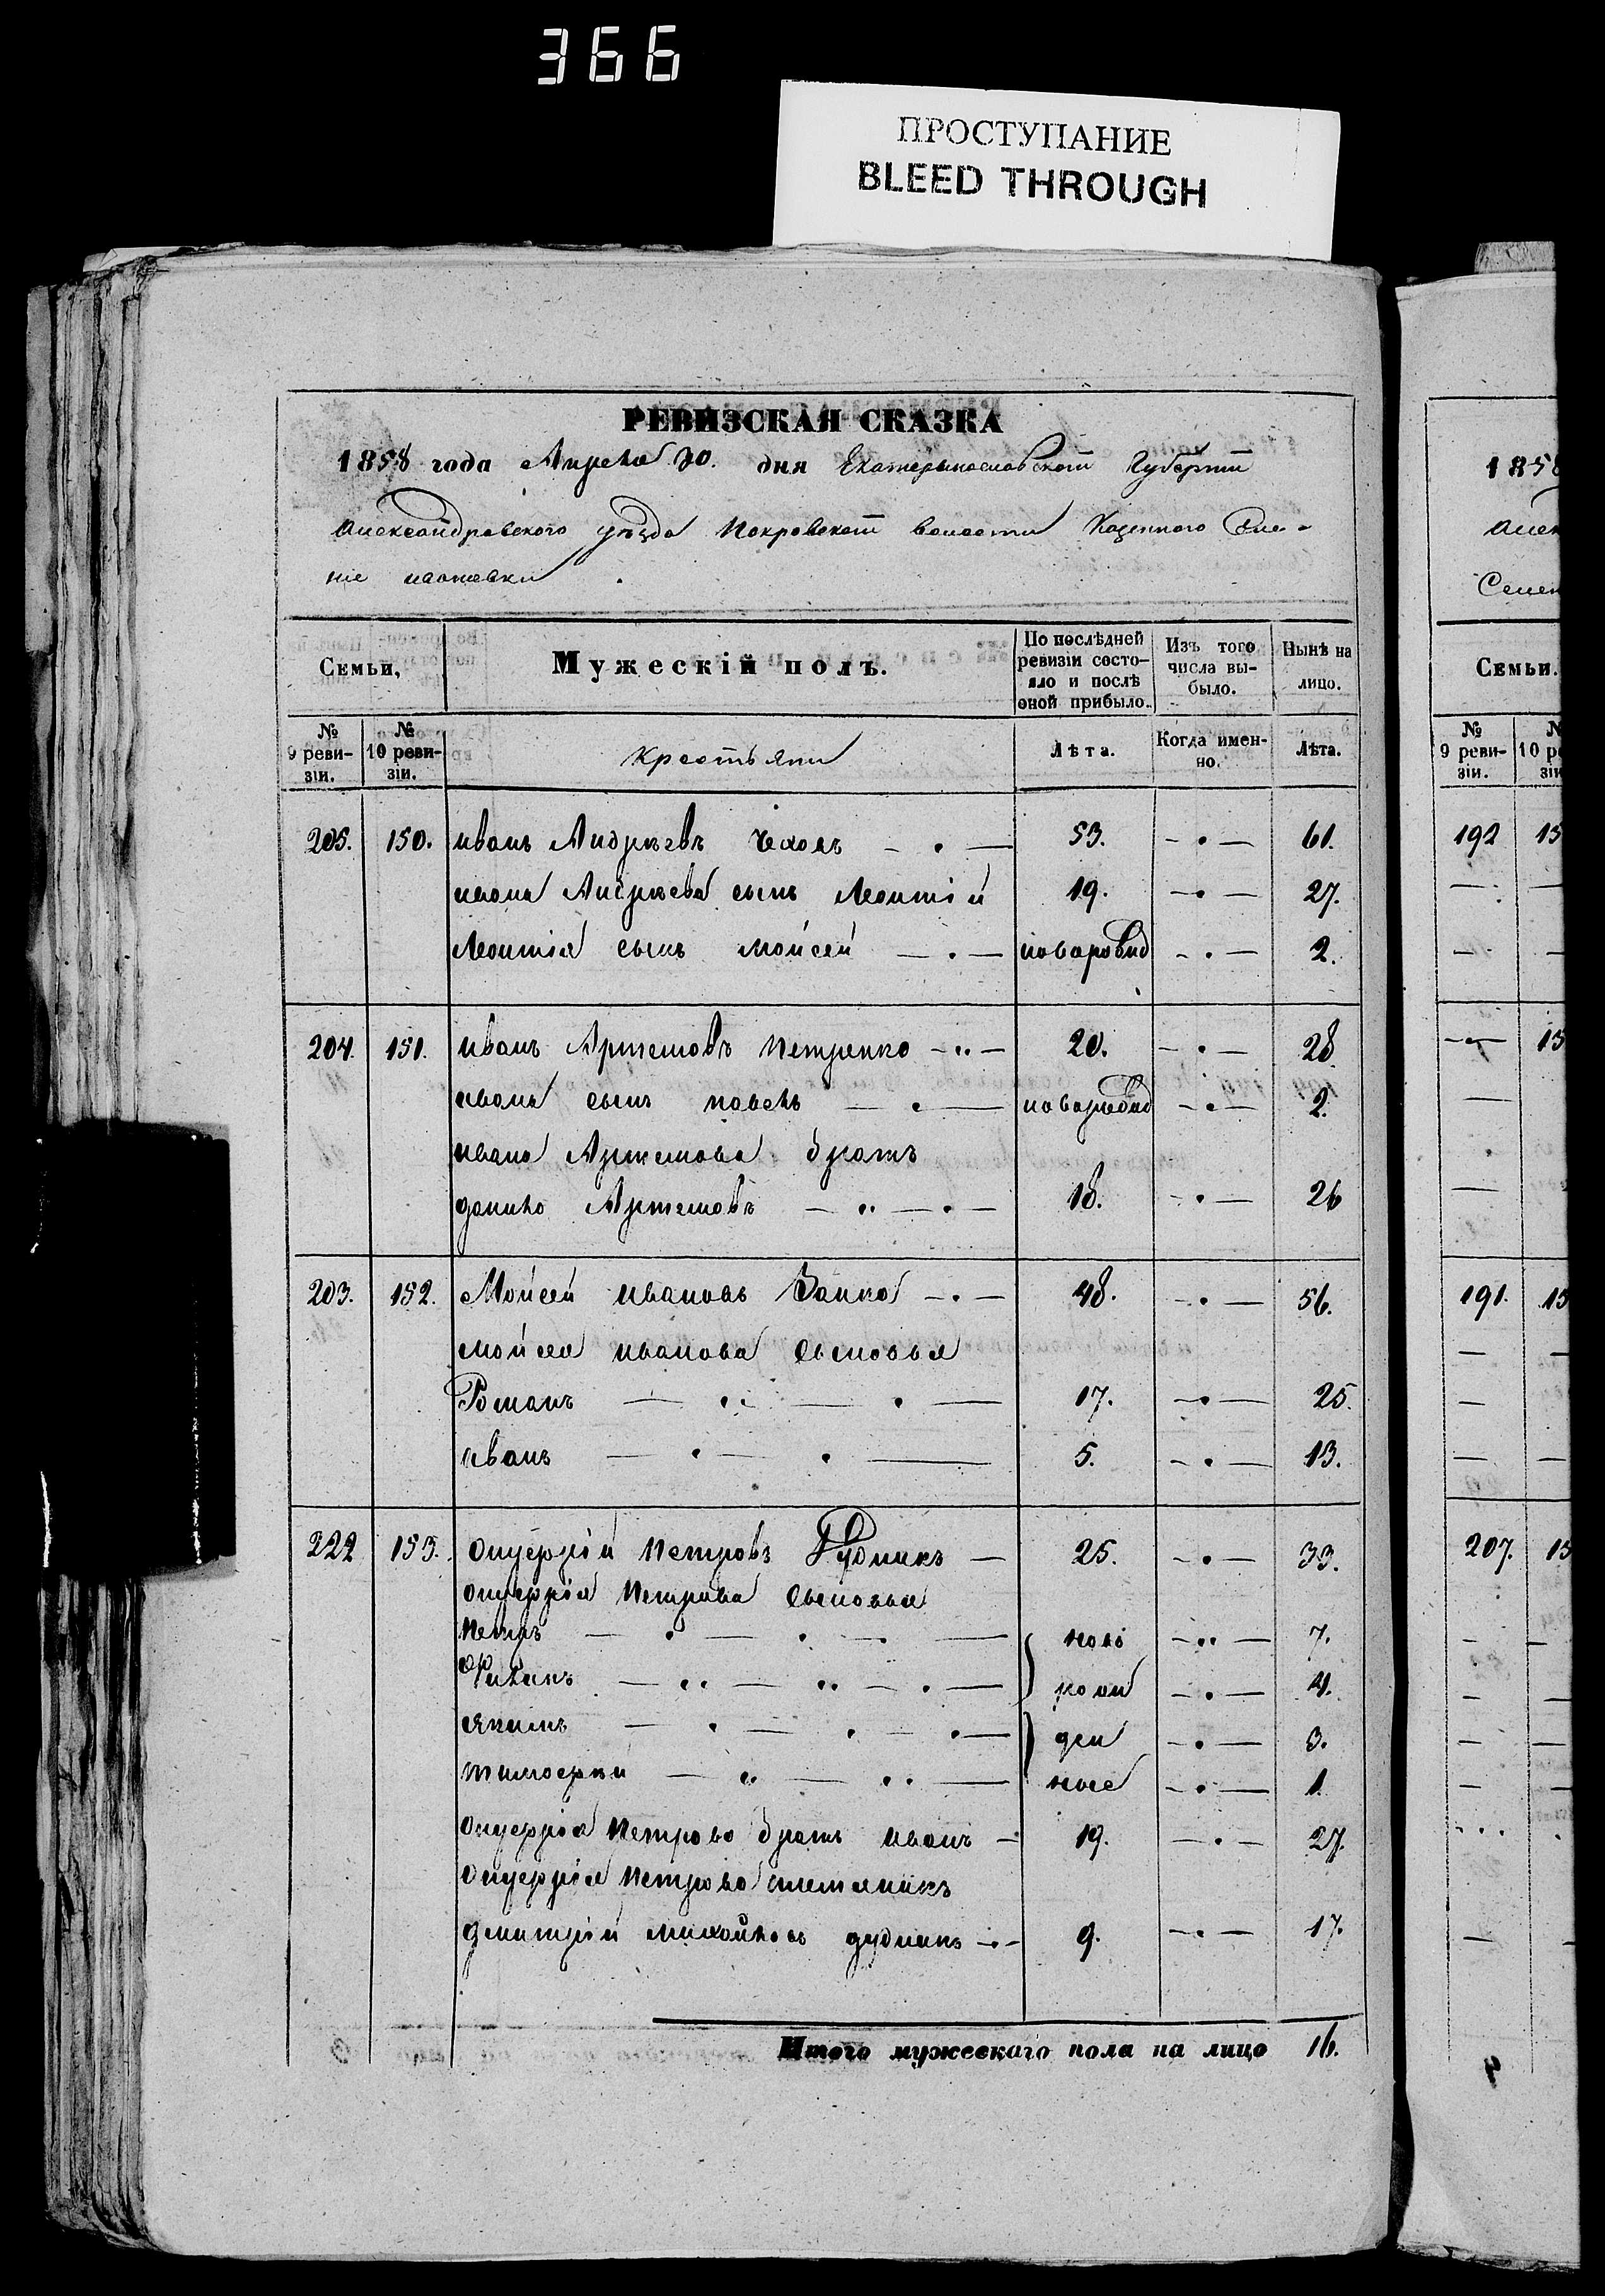 366
ПРОСТУПАНИЕ
BLEED THROUGH
РЕВИЗСКАЯ СКАЗКА
1858 года Апреля 30. дня Екатеринославской Губернии
Александровского уезда Покровской волости Казенного Селе-
ние
Семьи, Мужескій полъ. По послѣдней ревизіи состо-яло и послѣ оной прибыло. Изъ того числа вы-было. Нынѣ на лицо.
№ 9 реви-зіи. № 10 реви-зіи. Крестьяни Лѣта. Когда имен-но. Лѣта.
205. 150. иванъ Андрѣевъ Чехолъ — . — 53. — . — 61.
ивана Андрѣева сынъ Леонтій 19. — . — 27.
Леонтія сынъ мойсей — . — новорожд — . — 2.
204. 151. иванъ Артемовъ Петренко — .. — 20. — . — 28
ивана сынъ павелъ — . — новорожд — . — 2.
ивана Артемова братъ
данило Артемовъ — .. — . — 18. — . — 26
203. 152. Мойсей ивановъ Заика — . — 48. — . — 56.
мойсея иванова сыновья
Романъ — .. — . — 17. — . — 25.
иванъ — . — . — 5. — . — 13.
222 153. Онуфрій Петровъ Дудникъ — 25. — . — 33.
Онуфрія Петрова сыновья
Петръ — . — . — . — ново — .. — 7.
Филипъ — .. — .. — . — рожд — . — 4.
Якимъ — . — . — . — ден — . — 3.
тимофей — .. — .. — ные — . — 1.
Онуфрія Петрова братъ иванъ — 19. — . — 27.
Онуфрія Петрова племянникъ
дмитрій михайловъ дудникъ — . — 9. — . — 17.
Итого мужескаго пола на лицо 16.
1858
Алек
Селен
Семьи.
№ 9 реви-зіи. № 10 ре зіи
192 15
15
191. 15
207. 15